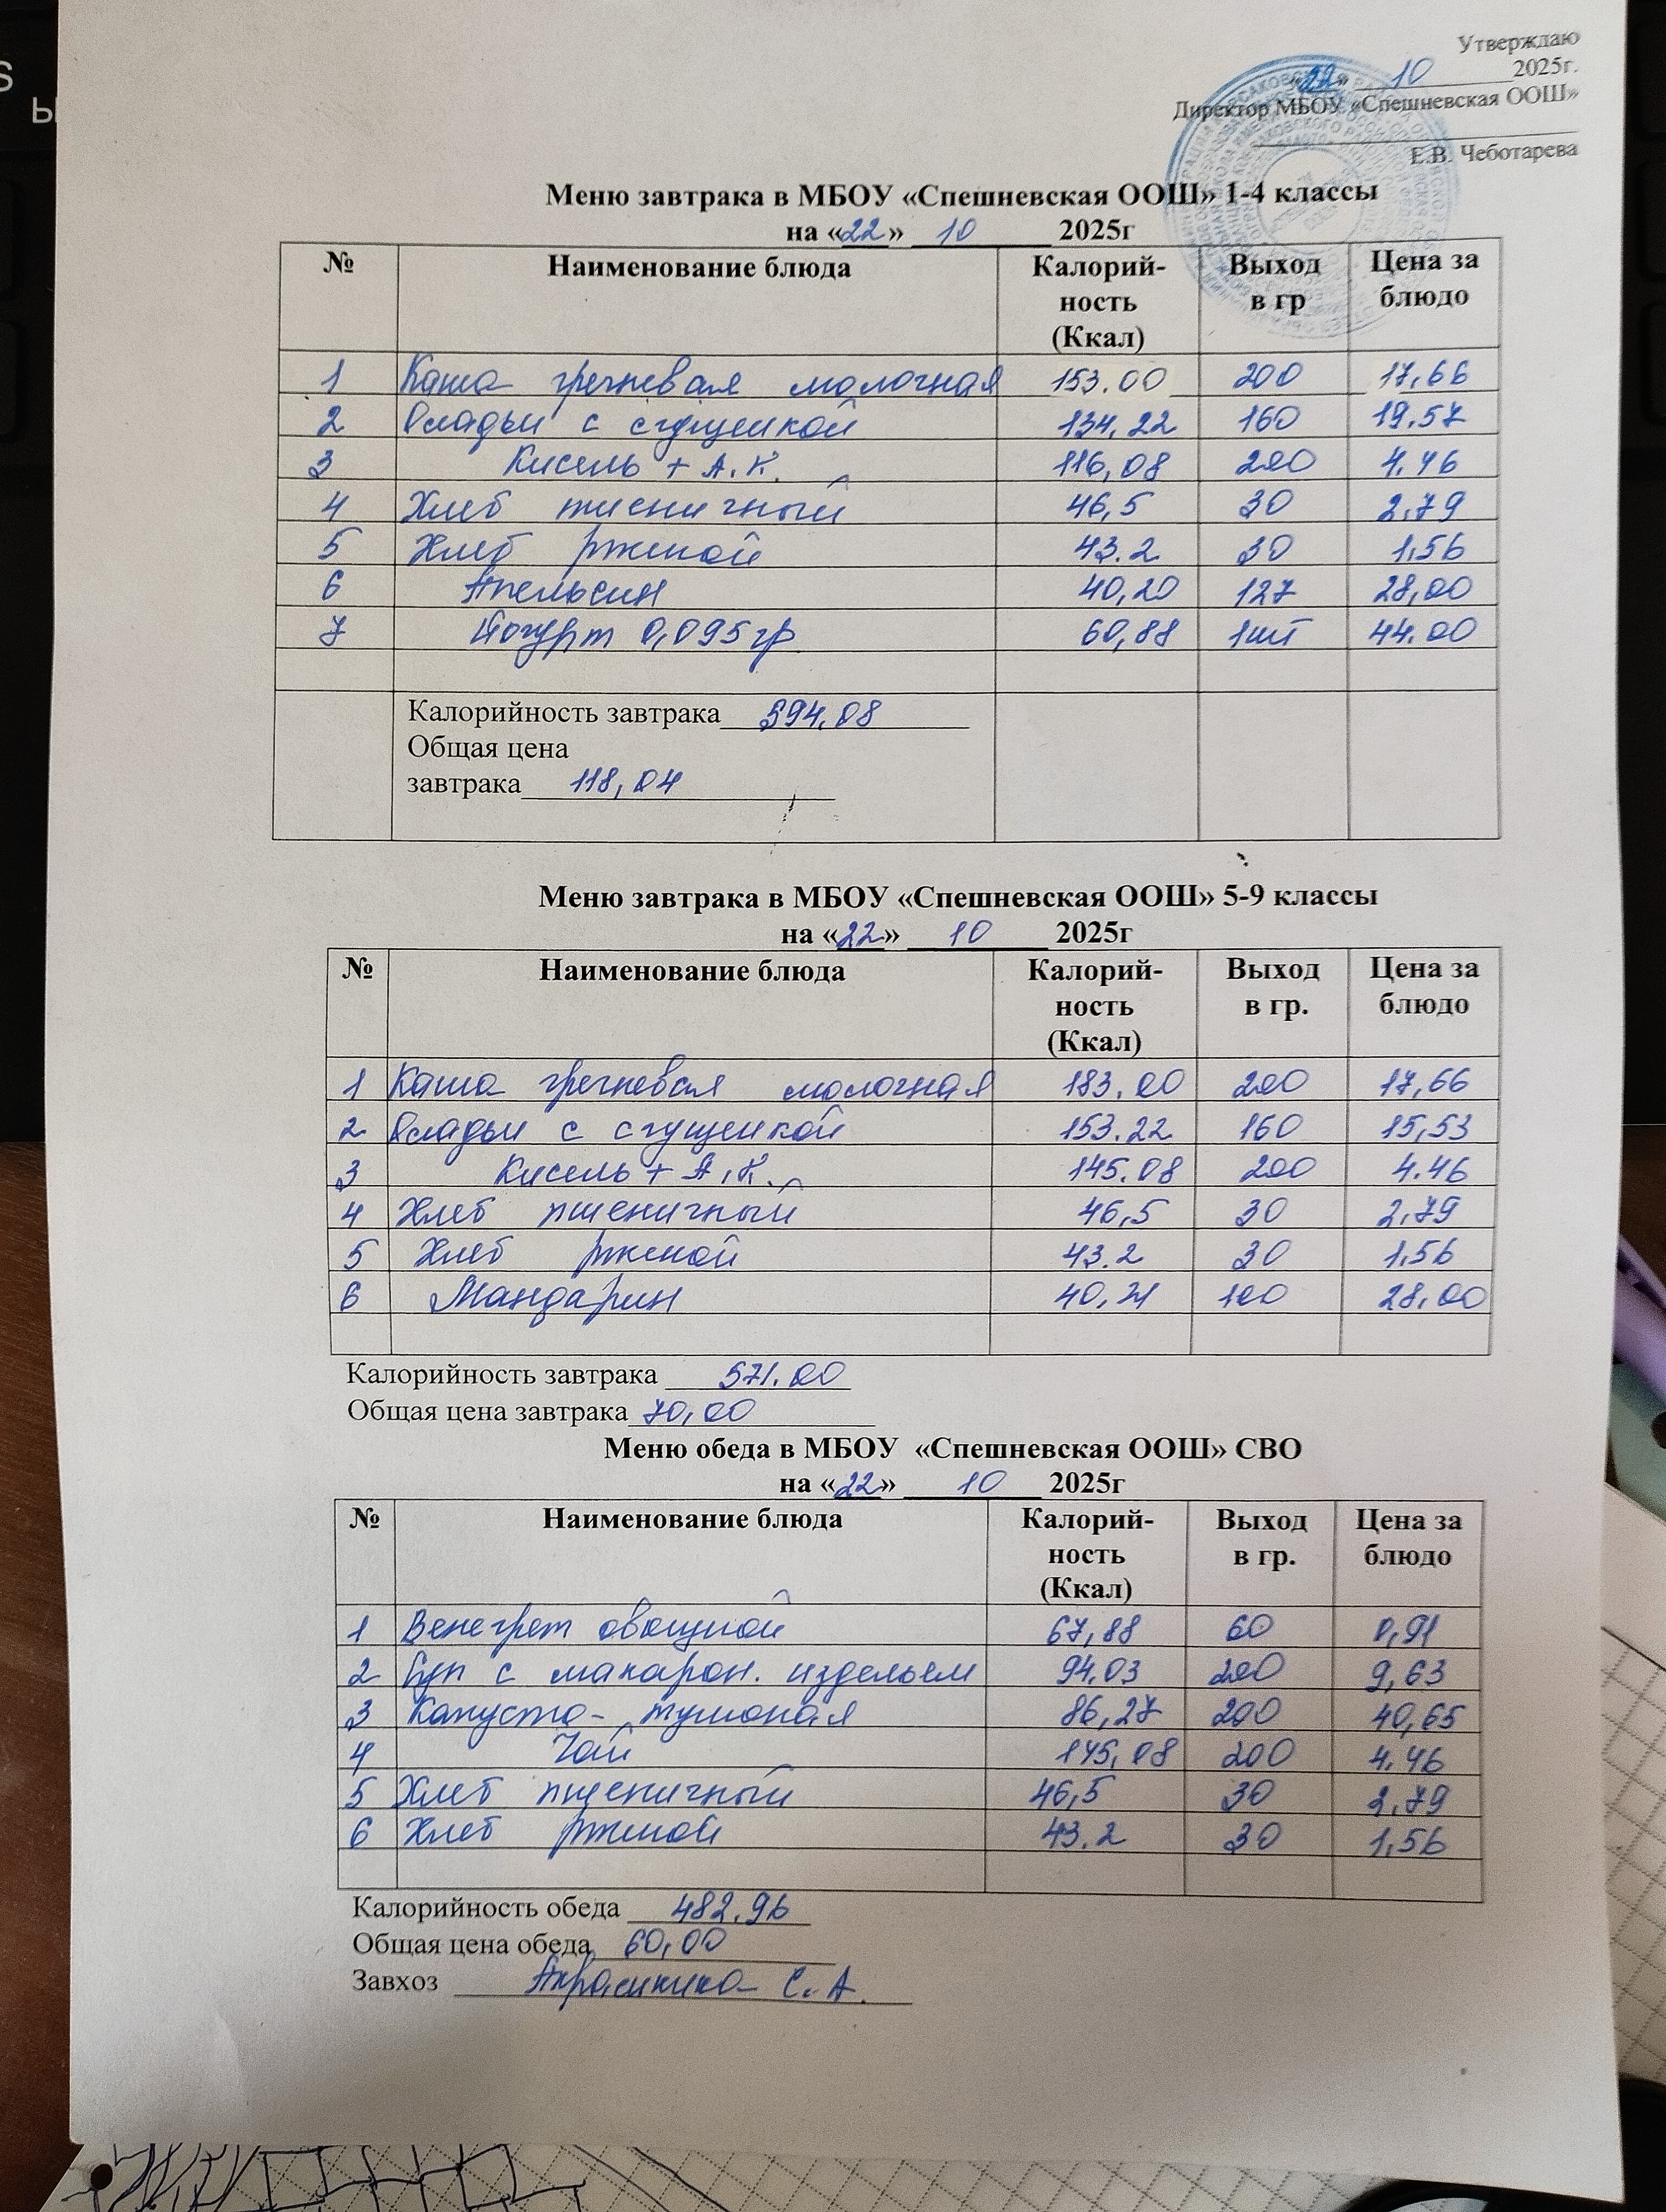 Утверждаю
«22» 10 2025г.
Директор МБОУ «Спешневская ООШ»
Е.В. Чеботарева
Меню завтрака в МБОУ «Спешневская ООШ» 1-4 классы
на «22» 10 2025г
№ Наименование блюда Калорий-ность (Ккал) Выход в гр Цена за блюдо
1 Каша гречневая молочная 153.00 200 17,66
2 Оладьи с сгущенкой 134,22 160 19,57
3 Кисель + А.К. 116,08 200 4.46
4 Хлеб пшеничный 46,5 30 2,79
5 Хлеб ржаной 43.2 30 1,56
6 Апельсин 40,20 127 28,00
7 Йогурт 0,095гр 60,88 1шт 44.00
Калорийность завтрака 594,08
Общая цена
завтрака 118,04
Меню завтрака в МБОУ «Спешневская ООШ» 5-9 классы
на «22» 10 2025г
№ Наименование блюда Калорий-ность (Ккал) Выход в гр. Цена за блюдо
1 Каша гречневая молочная 183.00 200 17,66
2 Оладьи с сгущенкой 153.22 160 15,53
3 Кисель + А.К. 145.08 200 4.46
4 Хлеб пшеничный 46,5 30 2,79
5 Хлеб ржаной 43.2 30 1,56
6 Мандарин 100 28,00
Калорийность завтрака 571.00
Общая цена завтрака 70,00
Меню обеда в МБОУ «Спешневская ООШ» СВО
на «22» 10 2025г
№ Наименование блюда Калорий-ность (Ккал) Выход в гр. Цена за блюдо
1 Венегрет овощной 67,88 60 0,91
2 Суп с макарон. издельем 94.03 200 9,63
3 Капуста тушоная 86,27 200 40,65
4 Чай 145,08 200 4.46
5 Хлеб пшеничный 46,5 30 2,79
6 Хлеб ржаной 43.2 30 1,56
Калорийность обеда 482,96
Общая цена обеда 60,00
Завхоз С.А.